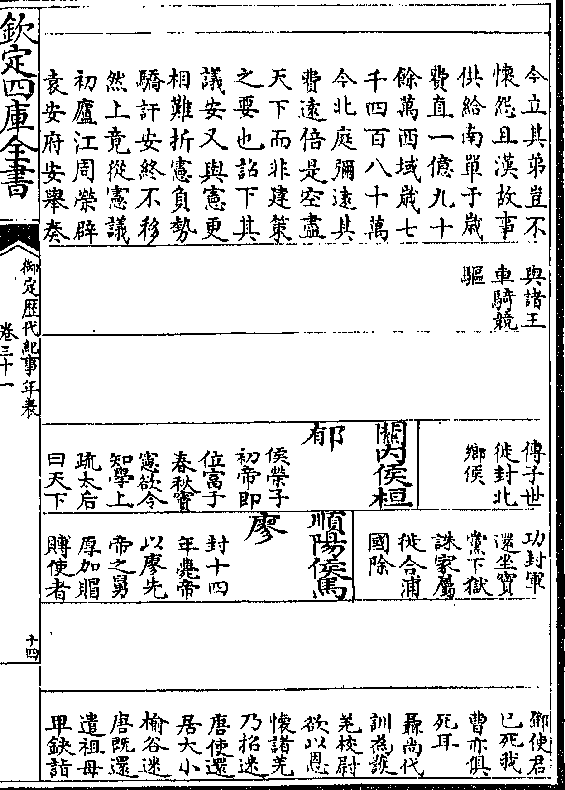 今立其弟豈不
懷怨且漢故事
供給南單于歲
費直一億九十
餘萬西域歲七
千四百八十萬
今北庭彌遠其
費遠倍是空盡
天下而非建策
之要也詔下其
議安又與憲更
相難折憲負勢
驕訐安終不移
然上竟從憲議
初廬江周榮辟
袁安府安舉奏
與諸王
車騎競
驅
傳子世
徙封北
鄉侯
關内侯桓
郁
侯榮子
初帝即
位富于
春秋竇
憲欲令
知學上
疏太后
曰天下
功封軍
還坐竇
黨下獄
誅家屬
徙合浦
國除
順陽侯馬
廖
封十四
年薨帝
以廖先
帝之舅
厚加賵
賻使者
鄧使君
已死我
曹亦俱
死耳
聶尚代
訓為護
羌校尉
欲以恩
懷諸羌
乃招迷
唐使還
居大小
榆谷迷
唐既還
遣祖母
卑缺詣
欽定四庫全書
御定歷代紀事年表
卷三十一
十四